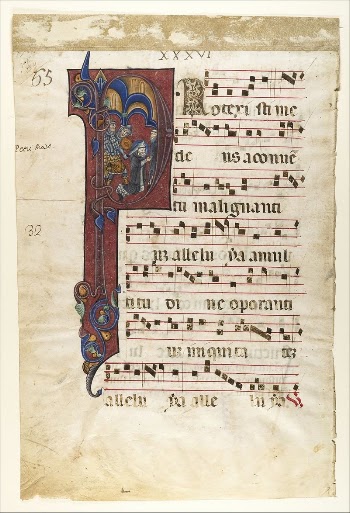 XXXVI
65
Rotexi sti me
de us aconuē
tu malignanti
32
um allelu ya amul
titu di ne operanti
um iniquita tē
allelu ya alle lu ya